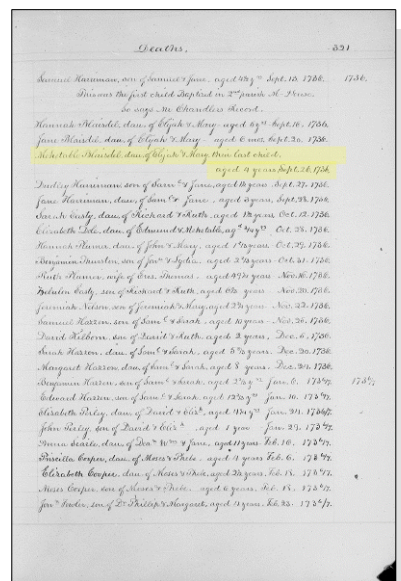 Deaths. 391
Samuel Harriman, son of Samuel & Jane, aged 4 Sept. 13, 1736. 1736.
This was the first child Baptized in 2nd parish M-House.
So says Mr Chandlers Record.
Hannah Plaisdel, dau. of Elijah & Mary aged Sept. 16, 1736.
Jane Plaisdel, dau. of Elijah & Mary aged 6 mos. Sept. 20, 1736.
Mehetable Plaisdel, dau. of Elijah & Mary, their last child,
aged 4 years, Sept. 26, 1736.
Dudley Harriman son of Sam.l & Jane, aged years Sept. 27, 1736.
Jane Harriman, dau. of Sam.l & Jane, aged 3 years, Sept. 28, 1736.
Sarah Easty, dau. of Richard & Ruth, aged years Oct. 12, 1736.
Elizabeth Dole, dau. of Edmund & Mehetable, Oct. 28, 1736.
Hannah Plumer, dau. of John & Mary, aged years Oct. 29, 1736.
Benjamin Thurston, son of Jon.n & Lydia, aged years Oct. 31, 1736.
Ruth Plumer, wife of Thomas, aged years Nov. 16, 1736.
Easty, son of Richard & Ruth, aged years Nov. 20, 1736.
Jeremiah Nelson, son of Jeremiah & Mary, aged years Nov. 22, 1736.
Samuel Hazzen, son of Sam.l & Sarah, aged years Nov. 26, 1736.
David Hilborn, son of David & Ruth, aged 2 years, Dec. 6, 1736.
Sarah Hazzen, dau. of Sam.l & Sarah, aged years, Dec. 20, 1736.
Margaret Hazzen, dau. of Sam.l & Sarah, aged 8 years, Dec. 1736.
Benjamin Hazzen, son of Sam.l & Sarah, aged Jan. 1736/7. 1736/7
Edward Hazzen, son of Sam.l & Sarah, aged Jan. 10, 1736/7.
Elizabeth Perley, dau. of David & Eliz.h, aged Jan. 1736/7.
John Perley, son of David & Eliz.h aged 1 year Jan. 29, 1736/7.
Anna Searle, dau. of Dea.n W.m & Jane, aged 11 year Feb. 10, 1736/7.
Priscilla Cooper, dau. of Moses & Phebe, aged 4 years Feb. 6, 1736/7.
Elizabeth Cooper, dau. of Moses & Phebe, aged years, Feb. 1736/7.
Moses Cooper, son of Moses & Phebe, aged 6 years, Feb. 18, 1736/7.
Jon.n Fowler, son of D.r Phillip & Margaret, aged 4 years, Feb. 23, 1736/7.